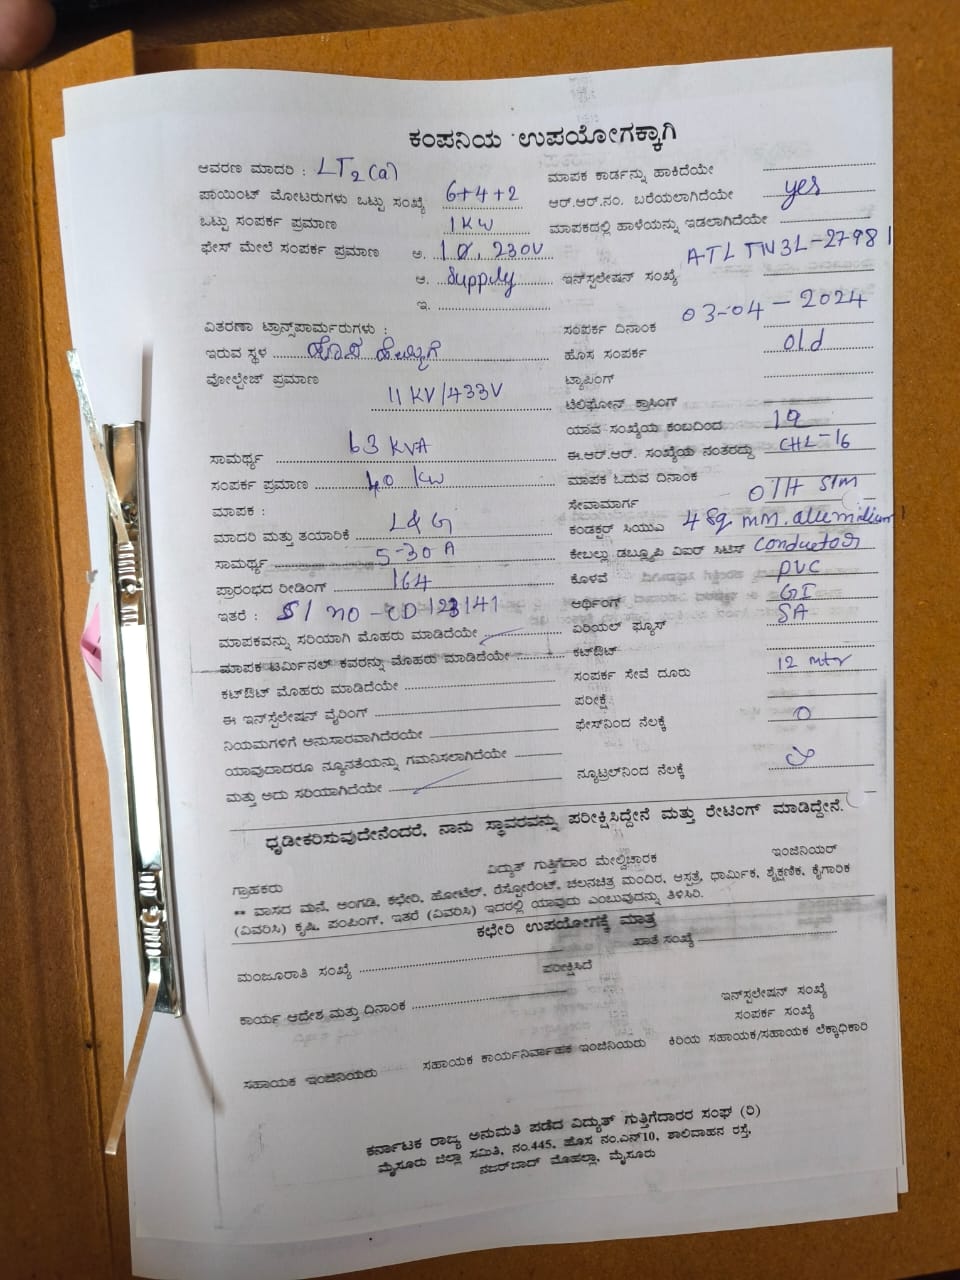 ಕಂಪನಿಯ ಉಪಯೋಗಕ್ಕಾಗಿ
ಆವರಣ ಮಾದರಿ : LT2(a)
ಪಾಯಿಂಟ್ ಮೋಟರುಗಳು ಒಟ್ಟು ಸಂಖ್ಯೆ 6+4+2
ಒಟ್ಟು ಸಂಪರ್ಕ ಪ್ರಮಾಣ 1KW
ಫೇಸ್ ಮೇಲೆ ಸಂಪರ್ಕ ಪ್ರಮಾಣ ಅ. 1Ø, 230V
ಆ. Supply
ಇ.
ವಿತರಣಾ ಟ್ರಾನ್ಸ್‌ಪಾರ್ಮರುಗಳು :
ಇರುವ ಸ್ಥಳ
ವೋಲ್ಟೇಜ್ ಪ್ರಮಾಣ 11KV/433V
ಸಾಮರ್ಥ್ಯ 63 KVA
ಸಂಪರ್ಕ ಪ್ರಮಾಣ 40 KW
ಮಾಪಕ :
ಮಾದರಿ ಮತ್ತು ತಯಾರಿಕೆ L&G
ಸಾಮರ್ಥ್ಯ 5-30A
ಪ್ರಾರಂಭದ ರೀಡಿಂಗ್ 164
ಇತರೆ : Sl no -
ಮಾಪಕವನ್ನು ಸರಿಯಾಗಿ ಮೊಹರು ಮಾಡಿದೆಯೇ
ಮಾಪಕ ಟರ್ಮಿನಲ್ ಕವರನ್ನು ಮೊಹರು ಮಾಡಿದೆಯೇ
ಕಟ್‌ಔಟ್ ಮೊಹರು ಮಾಡಿದೆಯೇ
ಈ ಇನ್‌ಸ್ಟಲೇಷನ್ ವೈರಿಂಗ್
ನಿಯಮಗಳಿಗೆ ಅನುಸಾರವಾಗಿದೆರಯೇ
ಯಾವುದಾದರೂ ನ್ಯೂನತೆಯನ್ನು ಗಮನಿಸಲಾಗಿದೆಯೇ
ಮತ್ತು ಅದು ಸರಿಯಾಗಿದೆಯೇ
ಮಾಪಕ ಕಾರ್ಡನ್ನು ಹಾಕಿದೆಯೇ
ಆರ್.ಆರ್.ನಂ. ಬರೆಯಲಾಗಿದೆಯೇ yes
ಮಾಪಕದಲ್ಲಿ ಹಾಳೆಯನ್ನು ಇಡಲಾಗಿದೆಯೇ
ಇನ್‌ಸ್ಟಲೇಷನ್ ಸಂಖ್ಯೆ ATLTN3L-27981
ಸಂಪರ್ಕ ದಿನಾಂಕ 03-04-2024
ಹೊಸ ಸಂಪರ್ಕ old
ಟ್ಯಾಪಿಂಗ್
ಟೆಲಿಫೋನ್ ಕ್ರಾಸಿಂಗ್
ಯಾವ ಸಂಖ್ಯೆಯ ಕಂಬದಿಂದ
ಈ.ಆರ್.ಆರ್. ಸಂಖ್ಯೆಯ ನಂತರದ್ದು CHL-16
ಮಾಪಕ ಓದುವ ದಿನಾಂಕ
ಸೇವಾಮಾರ್ಗ OTH
ಕಂಡಕ್ಟರ್ ಸಿಯುಎ 4 Sq mm. allumidium
ಕೇಬಲ್ಲು ಡಬ್ಲ್ಯೂಪಿ ವಿಐಆರ್ ಸಿಟಿಸ್ Conductor
ಕೊಳವೆ PVC
ಆರ್ಥಿಂಗ್ GI
ಏರಿಯಲ್ ಫ್ಯೂಸ್ SA
ಕಟ್‌ಔಟ್
ಸಂಪರ್ಕ ಸೇವೆ ದೂರು 12 mtr
ಪರೀಕ್ಷೆ
ಫೇಸ್‌ನಿಂದ ನೆಲಕ್ಕೆ 0
ನ್ಯೂಟ್ರಲ್‌ನಿಂದ ನೆಲಕ್ಕೆ
ಧೃಡೀಕರಿಸುವುದೇನೆಂದರೆ, ನಾನು ಸ್ಥಾವರವನ್ನು ಪರೀಕ್ಷಿಸಿದ್ದೇನೆ ಮತ್ತು ರೇಟಿಂಗ್ ಮಾಡಿದ್ದೇನೆ.
ಗ್ರಾಹಕರು ವಿದ್ಯುತ್ ಗುತ್ತಿಗೆದಾರ ಮೇಲ್ವಿಚಾರಕ ಇಂಜಿನಿಯರ್
** ವಾಸದ ಮನೆ, ಅಂಗಡಿ, ಕಛೇರಿ, ಹೋಟೆಲ್, ರೆಸ್ಟೋರೆಂಟ್, ಚಲನಚಿತ್ರ ಮಂದಿರ, ಆಸ್ಪತ್ರೆ, ಧಾರ್ಮಿಕ, ಶೈಕ್ಷಣಿಕ, ಕೈಗಾರಿಕ
(ವಿವರಿಸಿ) ಕೃಷಿ, ಪಂಪಿಂಗ್, ಇತರೆ (ವಿವರಿಸಿ) ಇದರಲ್ಲಿ ಯಾವುದು ಎಂಬುವುದನ್ನು ತಿಳಿಸಿರಿ.
ಕಛೇರಿ ಉಪಯೋಗಕ್ಕೆ ಮಾತ್ರ
ಮಂಜೂರಾತಿ ಸಂಖ್ಯೆ ಖಾತೆ ಸಂಖ್ಯೆ
ಪರೀಕ್ಷಿಸಿದೆ
ಕಾರ್ಯ ಆದೇಶ ಮತ್ತು ದಿನಾಂಕ
ಇನ್‌ಸ್ಟಲೇಷನ್ ಸಂಖ್ಯೆ
ಸಂಪರ್ಕ ಸಂಖ್ಯೆ
ಸಹಾಯಕ ಇಂಜಿನಿಯರು ಸಹಾಯಕ ಕಾರ್ಯನಿರ್ವಾಹಕ ಇಂಜಿನಿಯರು ಕಿರಿಯ ಸಹಾಯಕ/ಸಹಾಯಕ ಲೆಕ್ಕಾಧಿಕಾರಿ
ಕರ್ನಾಟಕ ರಾಜ್ಯ ಅನುಮತಿ ಪಡೆದ ವಿದ್ಯುತ್ ಗುತ್ತಿಗೆದಾರರ ಸಂಘ (ರಿ)
ಮೈಸೂರು ಜಿಲ್ಲಾ ಸಮಿತಿ, ನಂ.445, ಹೊಸ ನಂ.ಎನ್10, ಶಾಲಿವಾಹನ ರಸ್ತೆ,
ನಜರ್‌ಬಾದ್ ಮೊಹಲ್ಲಾ, ಮೈಸೂರು